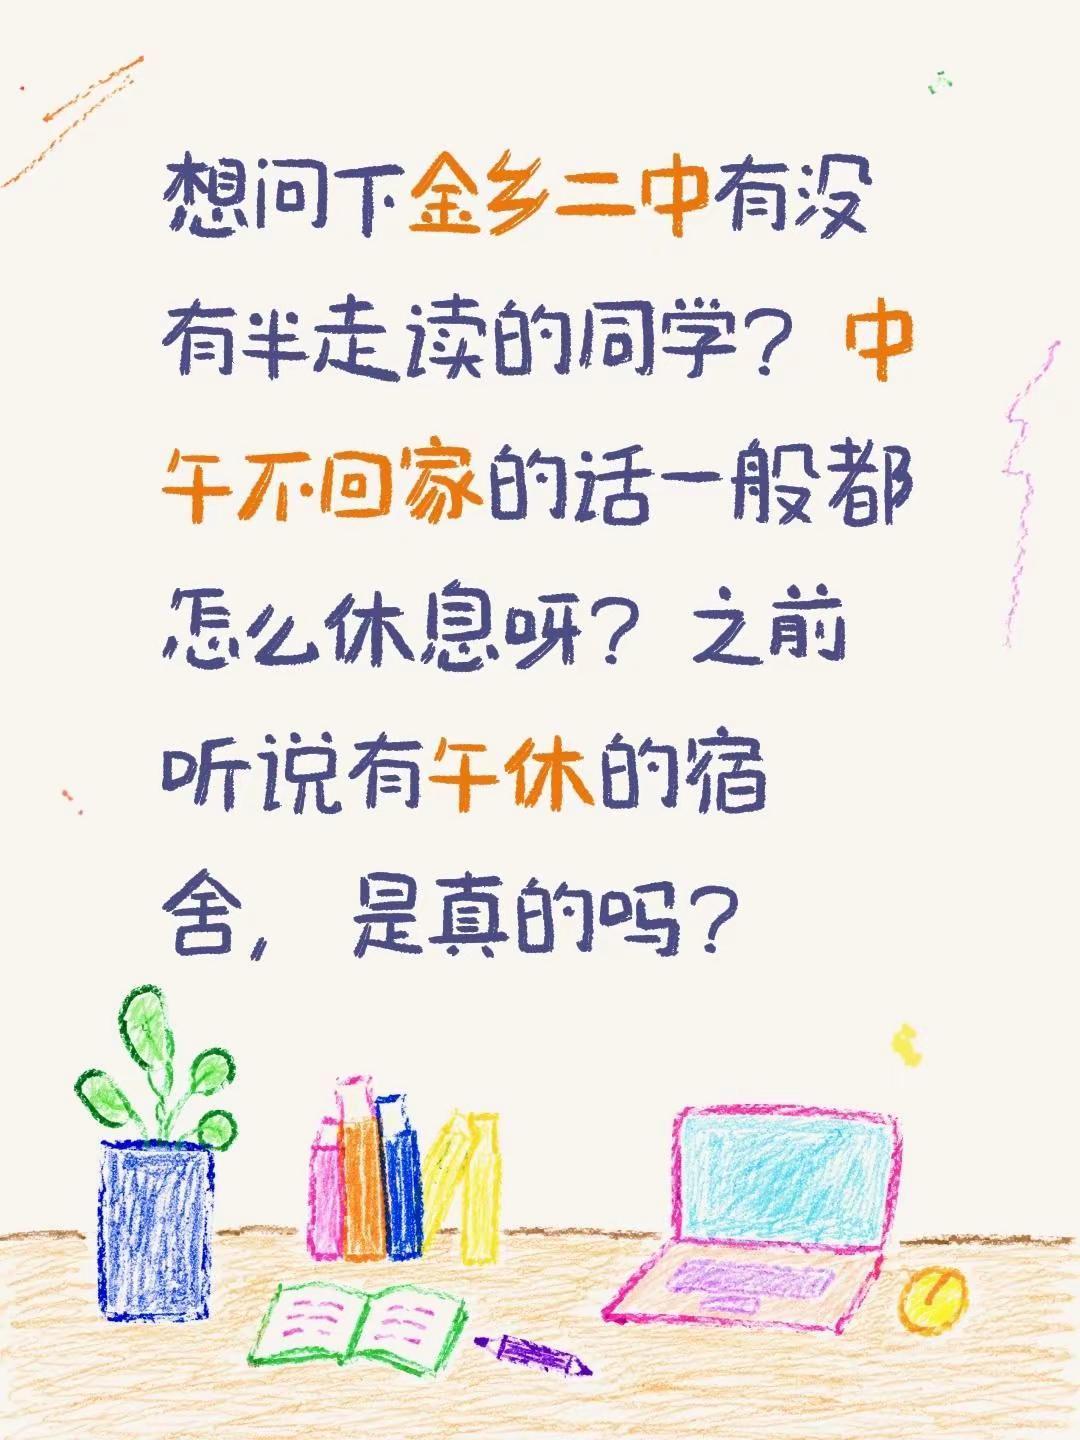 想问下金乡二中有没
有半走读的同学？ 中
午不回家的话一般都
怎么休息呀？ 之前
听说有午休的宿
舍， 是真的吗？